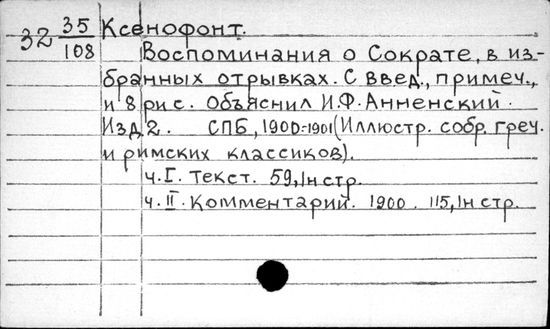 32 35/108 Ксенофонт.
Воспоминания о Сократе, в из-
бранных отрывках. С введ., примеч.,
и 8 рис. Объяснил И.Ф.Анненский.
Изд.2. СПБ, 1900-1901(Иллюстр. собр. греч.
и римских классиков).
ч.I. Текст. 59,Iн стр.
ч.II. Комментарий. 1900. 115,Iн стр.